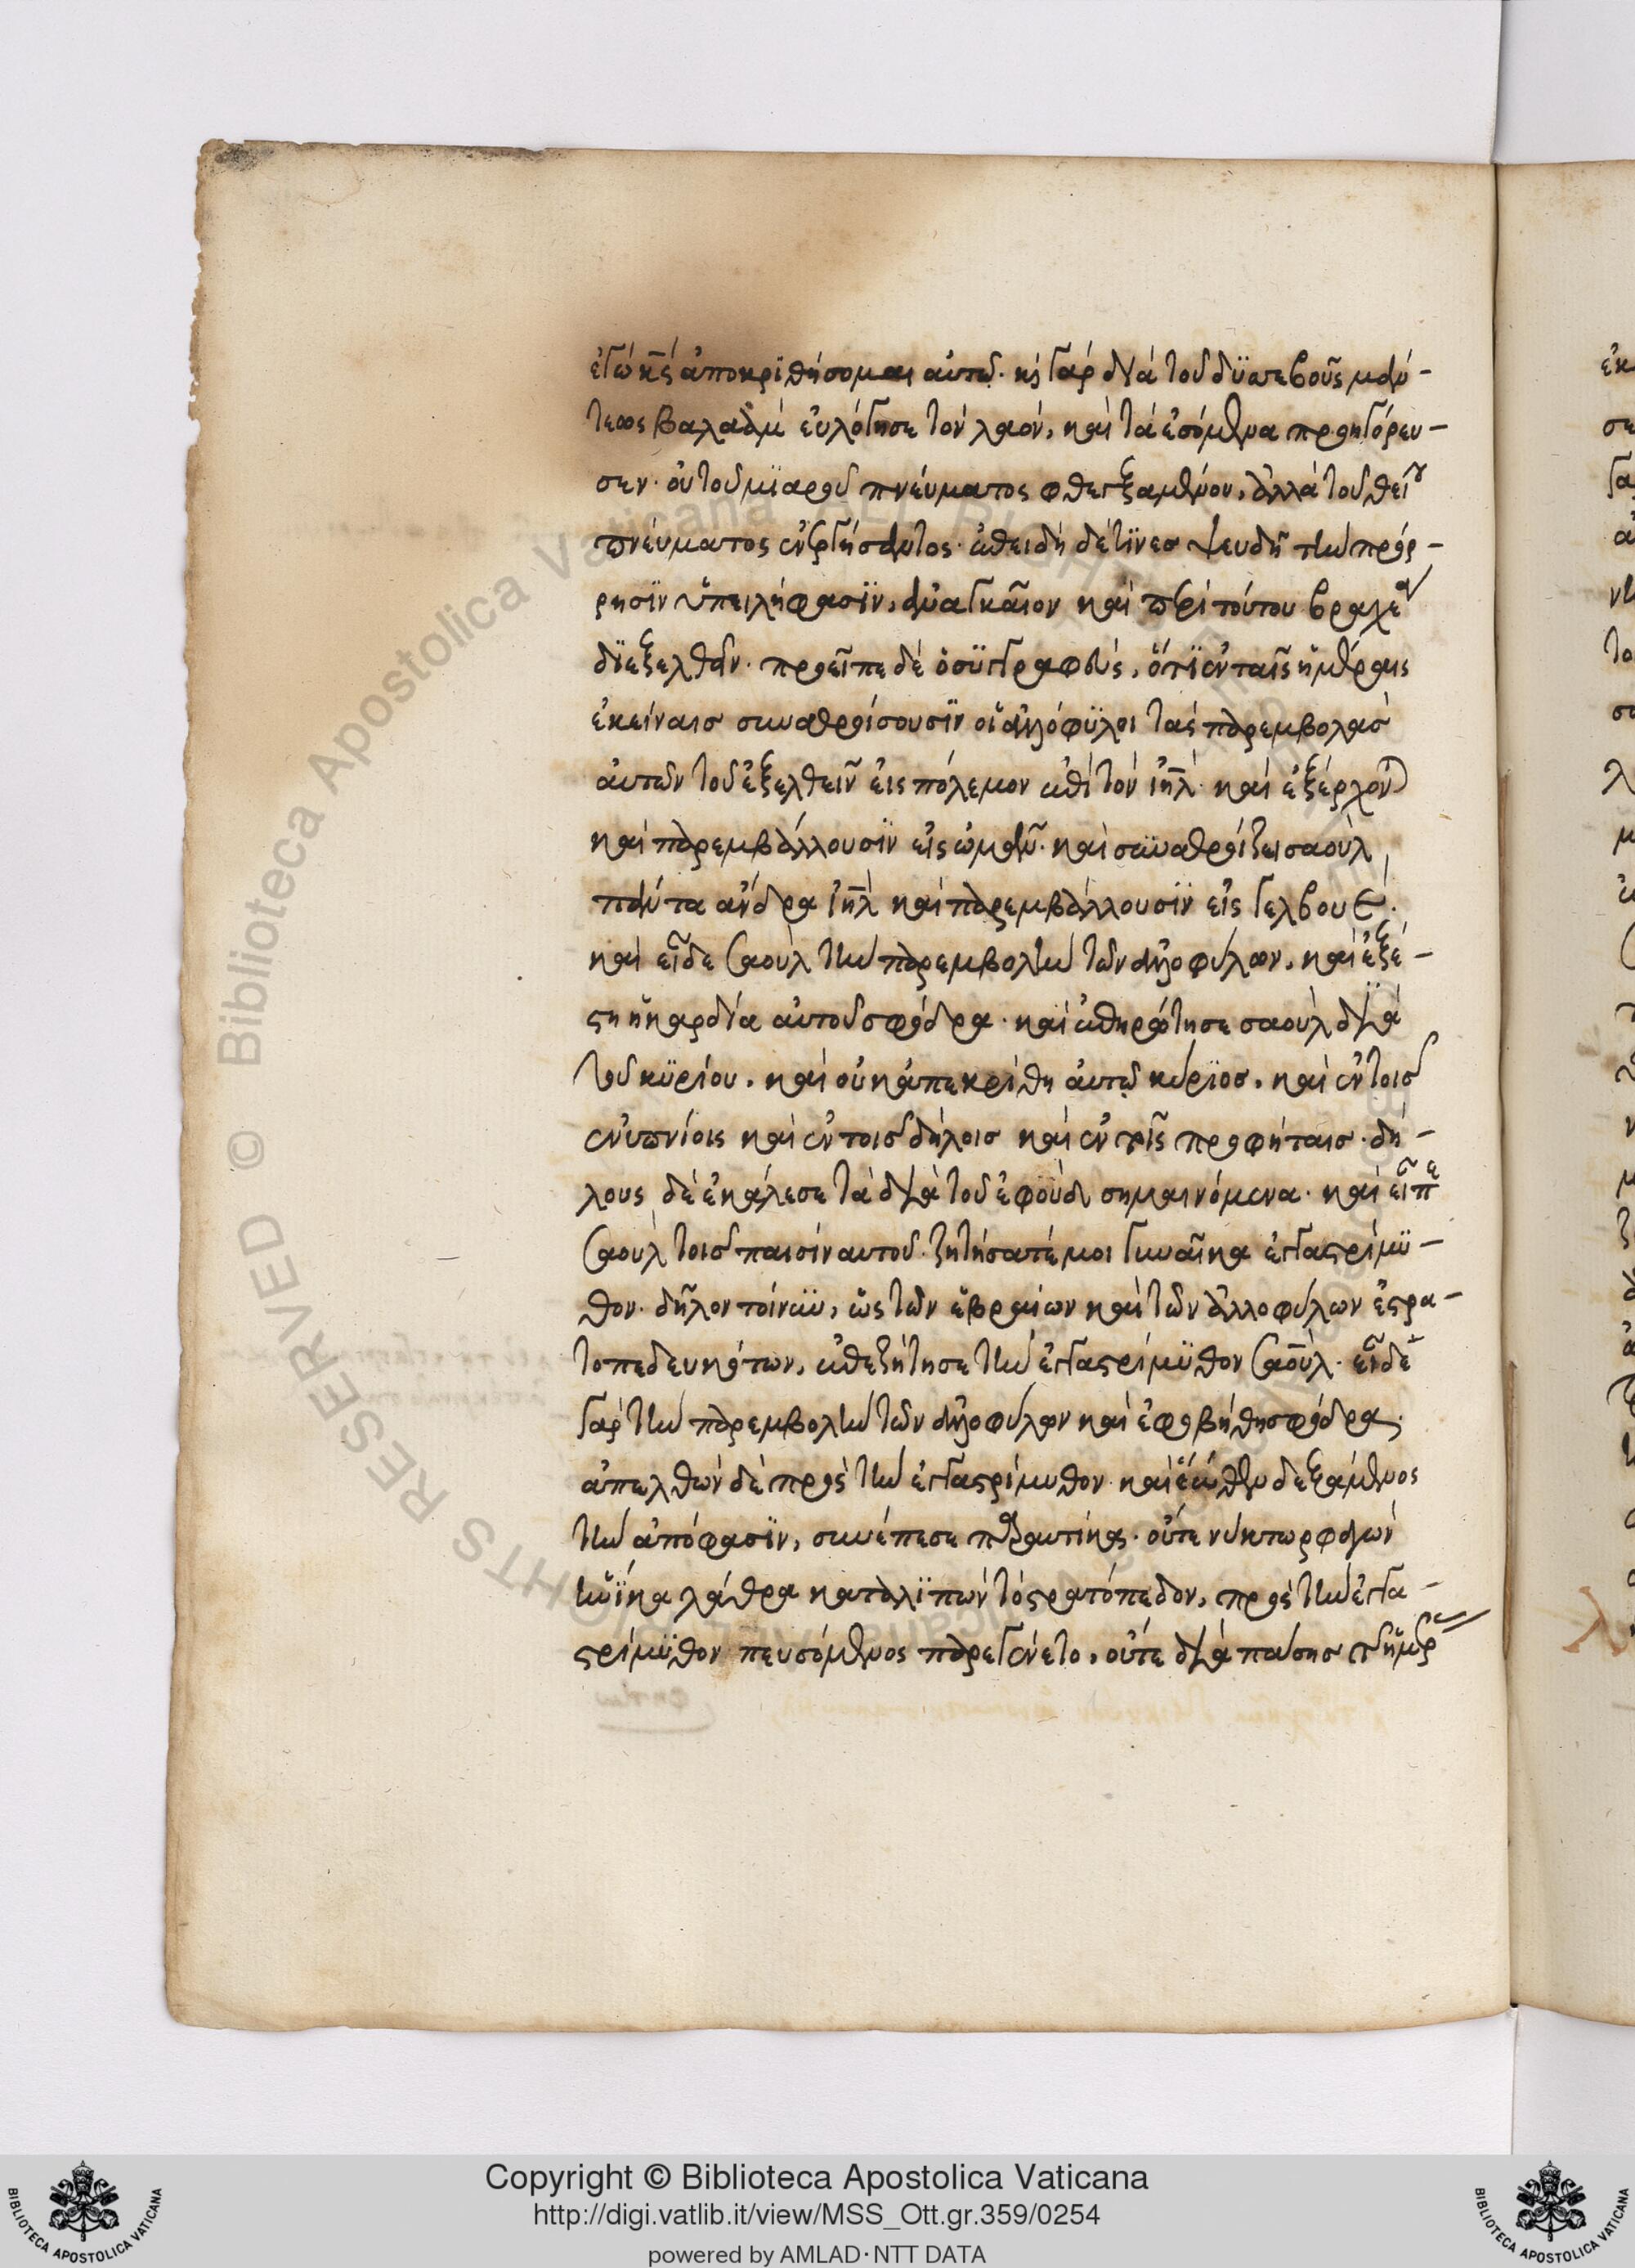 ἐγὼ κς ἀποκριθήσομαι αὐτῶ. καὶ γὰρ διὰ τοῦ δυσεβοῦς μάν-
τεως βαλαὰμ εὐλόγησε τὸν λαὸν, καὶ τὰ ἐσόμενα προηγόρευ-
σεν. οὐ τοῦ μϊαροῦ πνεύματος φθεγξαμένου, ἀλλὰ τοῦ θείου
πνεύματος ἐνεργήσαντος. ἐπειδὴ δέ τϊνεσ ψευδῆ τὴν πρόρ-
ρησϊν ὑπειλήφασϊν, ἀναγκαῖον καὶ περὶ τούτου βραχέα
δϊεξελθεῖν. προεῖπε δὲ ὁ συγγραφεὺς, ὅτϊ ἐν ταῖς ἡμέραις
ἐκείναισ συναθροίσουσϊν οἱ ἀλλόφϋλοι τὰς παρεμβολὰσ
αὐτῶν τοῦ ἐξελθεῖν εἰς πόλεμον ἐπὶ τὸν ιηλ. καὶ ἐξέρχον
καὶ παρεμβάλλουσϊν εἰς ὠμὰν. καὶ συναθροίζει σαοὺλ
πάντα ἄνδρα ιηλ καὶ παρεμβάλλουσϊν εἰς γελβουέ.
καὶ εἶδε σαοὺλ τὴν παρεμβολὴν τῶν ἀλλοφύλων, καὶ ἐξέ-
στη ἡ καρδία αὐτοῦ σφόδρα. καὶ ἐπηρώτησε σαοὺλ διὰ
τοῦ κϋρίου. καὶ οὐκ ἀπεκρίθη αὐτῶ κύρϊοσ. καὶ ἐν τοισ
ἐνυπνίοις καὶ ἐν τοισ δήλοισ καὶ ἐν τοῖς προφήταισ. δή-
λους δὲ ἐκάλεσε τὰ διὰ τοῦ ἐφοὺδ σημαινόμενα. καὶ εἶπε
σαοὺλ τοισ παισὶν αυτοῦ. ζητήσατέ μοι γυναῖκα ἐγγαστρίμϋ-
θον. δῆλον τοίνυν, ὡς τῶν ἑβραίων καὶ τῶν ἀλλοφύλων ἐστρα-
τοπεδευκότων, ἐπεζήτησε τὴν ἐγγαστρίμϋθον σαοὺλ. εἶδε
γὰρ τὴν παρεμβολὴν τῶν ἀλλοφύλων καὶ ἐφοβήθη σφόδρα.
ἀπελθὼν δὲ πρὸς τὴν ἐγγαστρίμυθον καὶ ἐκεῖθεν δεξάμενος
τὴν ἀπόφασϊν, συνέπεσε παραυτίκα. οὔτε νύκτωρ φυγὼν
ἡνίκα λάθρα καταλϊπὼν τὸ στρατόπεδον, πρὸς τὴν ἐγγα-
στρίμϋθον πευσόμενος παρεγένετο, οὔτε διὰ πάσησ τῆς ἡμέρ